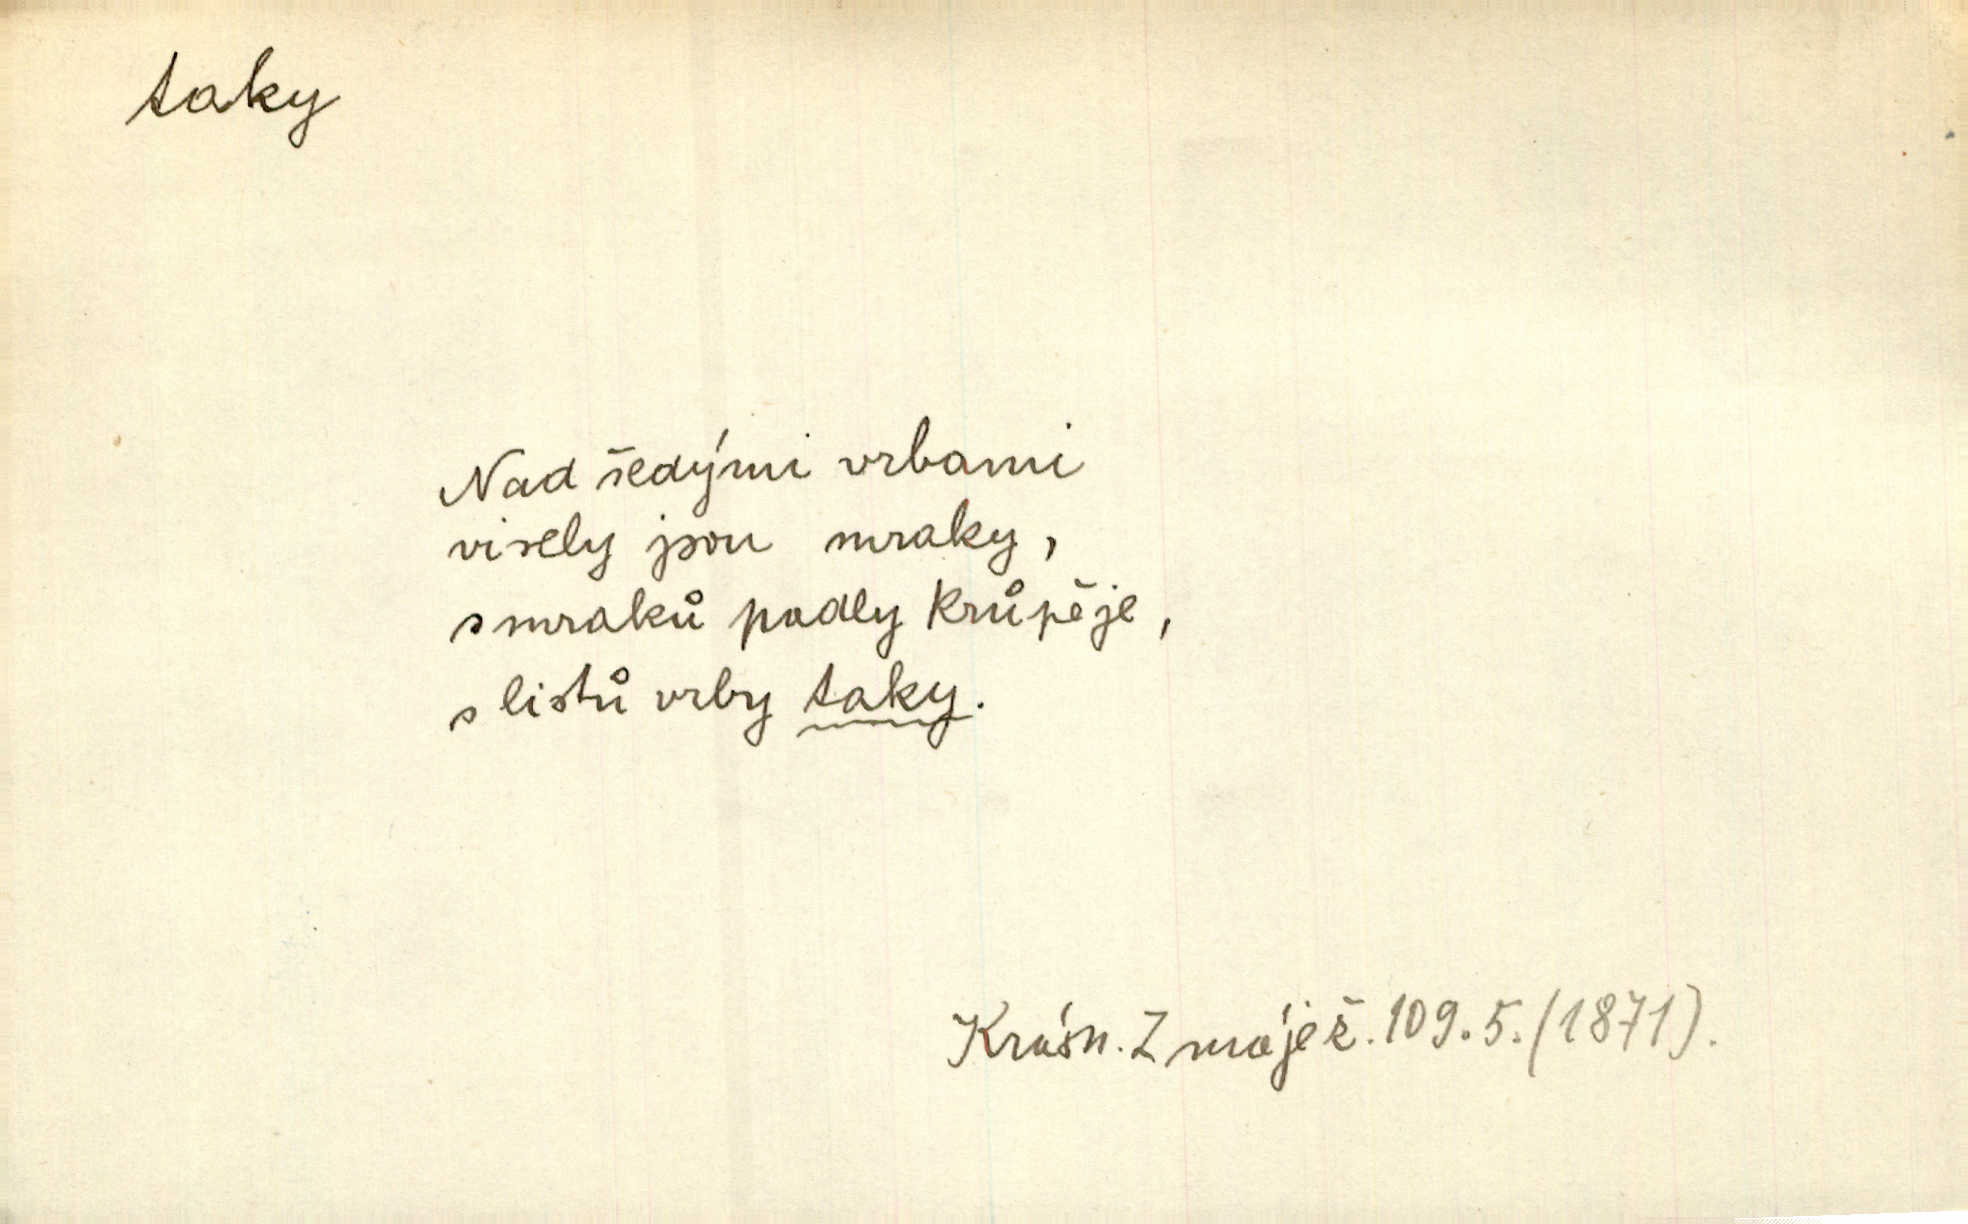 taky
Nad šedými vrbami
visely jsou mraky,
s mraků padly krůpěje,
s listů vrby taky.
Krásn. Z máje ž. 109.5. (1871).